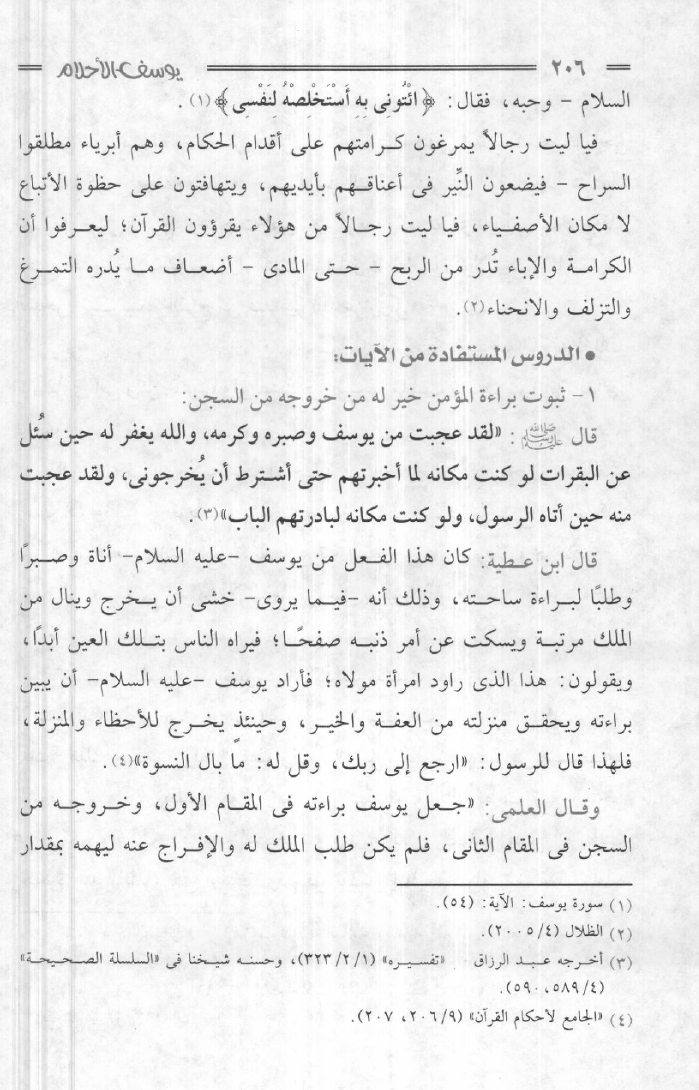 ٢٠٦ يوسف الأحلام
السلام – وحبه، فقال: ﴿ائْتُونِى بِهِ أَسْتَخْلِصْهُ لِنَفْسِى﴾(١).
فيا ليت رجالاً يمرغون كرامتهم على أقدام الحكام، وهم أبرياء مطلقوا
السراح – فيضعون النِّير فى أعناقهم بأيديهم، ويتهافتون على حظوة الأتباع
لا مكان الأصفياء، فيا ليت رجالاً من هؤلاء يقرؤون القرآن؛ ليعرفوا أن
الكرامة والإباء تُدر من الربح – حتى المادى – أضعاف ما يُدره التمرغ
والتزلف والانحناء(٢).
• الدروس المستفادة من الآيات:
١- ثبوت براءة المؤمن خير له من خروجه من السجن:
قال ﷺ: «لقد عجبت من يوسف وصبره وكرمه، والله يغفر له حين سُئل
عن البقرات لو كنت مكانه لما أخبرتهم حتى أشترط أن يُخرجونى، ولقد عجبت
منه حين أتاه الرسول، ولو كنت مكانه لبادرتهم الباب»(٣).
قال ابن عطية: كان هذا الفعل من يوسف –عليه السلام– أناة وصبرًا
وطلبًا لبراءة ساحته، وذلك أنه –فيما يروى– خشى أن يخرج وينال من
الملك مرتبة ويسكت عن أمر ذنبه صفحًا؛ فيراه الناس بتلك العين أبدًا،
ويقولون: هذا الذى راود امرأة مولاه؛ فأراد يوسف –عليه السلام– أن يبين
براءته ويحقق منزلته من العفة والخير، وحينئذٍ يخرج للأحظاء والمنزلة،
فلهذا قال للرسول: «ارجع إلى ربك، وقل له: ما بال النسوة»(٤).
وقال العلمى: «جعل يوسف براءته فى المقام الأول، وخروجه من
السجن فى المقام الثانى، فلم يكن طلب الملك له والإفراج عنه ليهمه بمقدار
(١) سورة يوسف: الآية: (٥٤).
(٢) الظلال (٢٠٠٥/٤).
(٣) أخرجه عبد الرزاق «تفسيره» (٣٢٣/٢/١)، وحسنه شيخنا فى «السلسلة الصحيحة»
(٥٨٩/٤، ٥٩٠).
(٤) «الجامع لأحكام القرآن» (٢٠٦/٩، ٢٠٧).